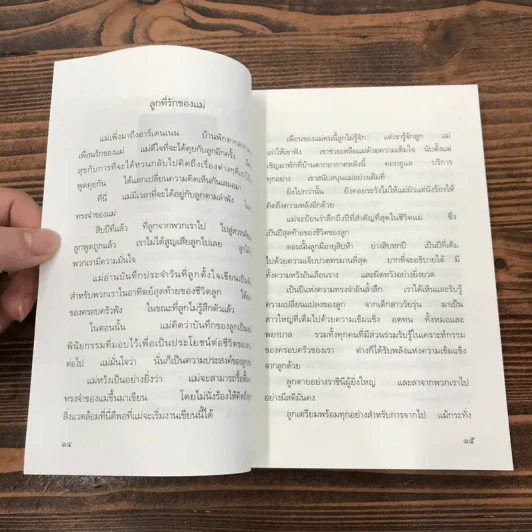 ลูกที่รักของแม่
แม่เพิ่งมาถึงอาร์เดนเนน บ้านพักตากอากาศ
เพื่อนรักของแม่ แม่ดีใจที่จะได้คุยกับลูกอีกครั้ง
สุขกับการที่จะได้หวนกลับไปคิดถึงเรื่องต่างๆที่เรา
พูดคุยกัน ได้แลกเปลี่ยนความคิดเห็นกันเสมอมา
ที่นี่ แม่มีเวลาที่จะได้อยู่กับลูกตามลำพัง
ทรงจำของแม่
สิบปีที่แล้ว ที่ลูกจากพวกเราไป ไปสู่สวรรค์
ลูกพูดถูกแล้ว เราไม่ได้สูญเสียลูกไปเลย
พวกเรามีความมั่นใจ
แม่อ่านบันทึกประจำวันที่ลูกตั้งใจเขียนเป็น
สำหรับพวกเราในอาทิตย์สุดท้ายของชีวิตลูก ให้
ของครอบครัวฟัง ในขณะที่ลูกไม่รู้สึกตัวแล้ว
ในตอนนั้น แม่คิดว่าบันทึกของลูกเป็น
พินัยกรรมที่มอบไว้เพื่อเป็นประโยชน์ต่อชีวิตของ
ต่อไป แม่มั่นใจว่า นั่นก็เป็นความประสงค์ของลูก
แม่หวังเป็นอย่างยิ่งว่า แม่จะสามารถรื้อฟื้น
ทรงจำของแม่ขึ้นมาเขียน โดยไม่นั่งร้องไห้คิดถึง
สิ่งแวดล้อมที่นี่ดีพอที่แม่จะเริ่มงานเขียนนี้ได้
๑๔
เพื่อนของแม่คนนี้ลูกไม่รู้จัก แต่เขารู้จักลูก แม่
เล่าให้เขาฟัง เขาช่วยเหลือแม่ด้วยความเต็มใจ นับตั้งแต่
เชิญมาพักที่บ้านตากอากาศหลังนี้ คอยดูแล บริการ
ทุกอย่าง เขาสนับสนุนแม่อย่างเต็มที่
ยิ่งไปกว่านั้น ยังคอยระวังไม่ให้แม่มัวแต่นั่งร้องไห้
คิดถึงความหลังอีกด้วย
แม่จะย้อนรำลึกถึงปีที่สำคัญที่สุดในชีวิตแม่ ซึ่ง
เป็นปีสุดท้ายของชีวิตของลูก
ตอนนั้นลูกมีอายุสิบห้า ย่างสิบหกปี เป็นปีที่เต็ม
ไปด้วยความเจ็บปวดทรมานที่สุด ยากที่จะอธิบายได้ มี
ทั้งความหวังอันเลือนราง และผิดหวังอย่างยิ่งยวด
เป็นปีแห่งความทรงจำอันล้ำลึก เราได้เห็นและรับรู้
ความเปลี่ยนแปลงของลูก จากเด็กสาววัยรุ่น มาเป็น
สาวใหญ่ที่เต็มไปด้วยความเข้มแข็ง อดทน ทั้งหมอและ
พยาบาล รวมทั้งทุกคนที่มีส่วนร่วมรับรู้ในเคราะห์กรรม
ของครอบครัวของเรา ต่างก็ได้รับพลังแห่งความเข้มแข็ง
จากลูกด้วย
ลูกตายอย่างราชินีผู้ยิ่งใหญ่ และลาจากพวกเราไป
อย่างมีสติมั่นคง
ลูกเตรียมพร้อมทุกอย่างสำหรับการจากไป แม้กระทั่ง
๑๕